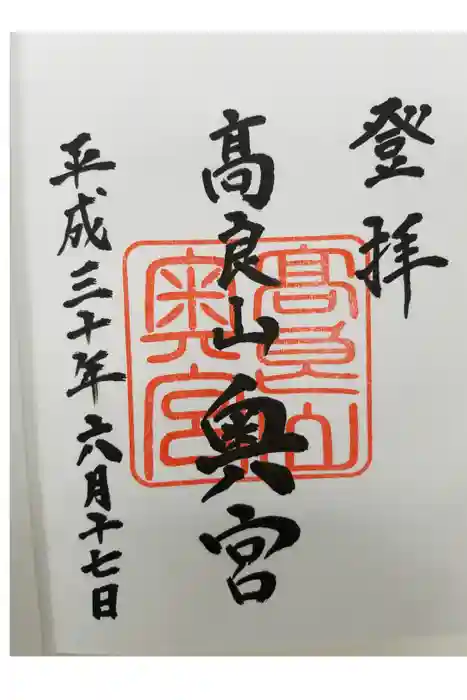 登拝
髙良山奥宮
平成三十年六月十七日
髙良山
奥宮